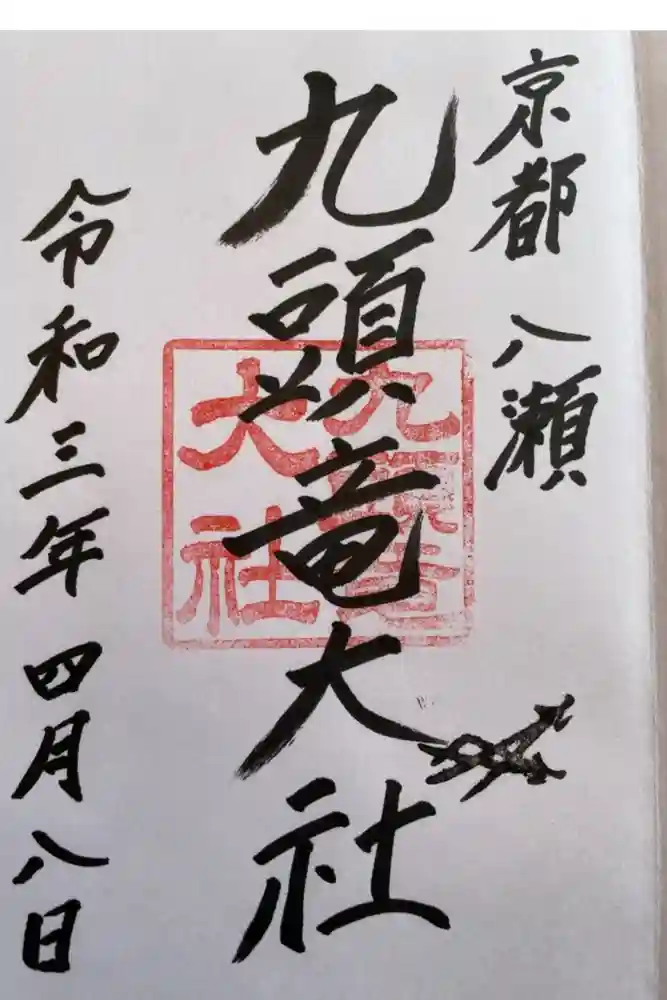 京都 八瀬
九頭竜大社
九頭竜
大社
令和三年 四月八日